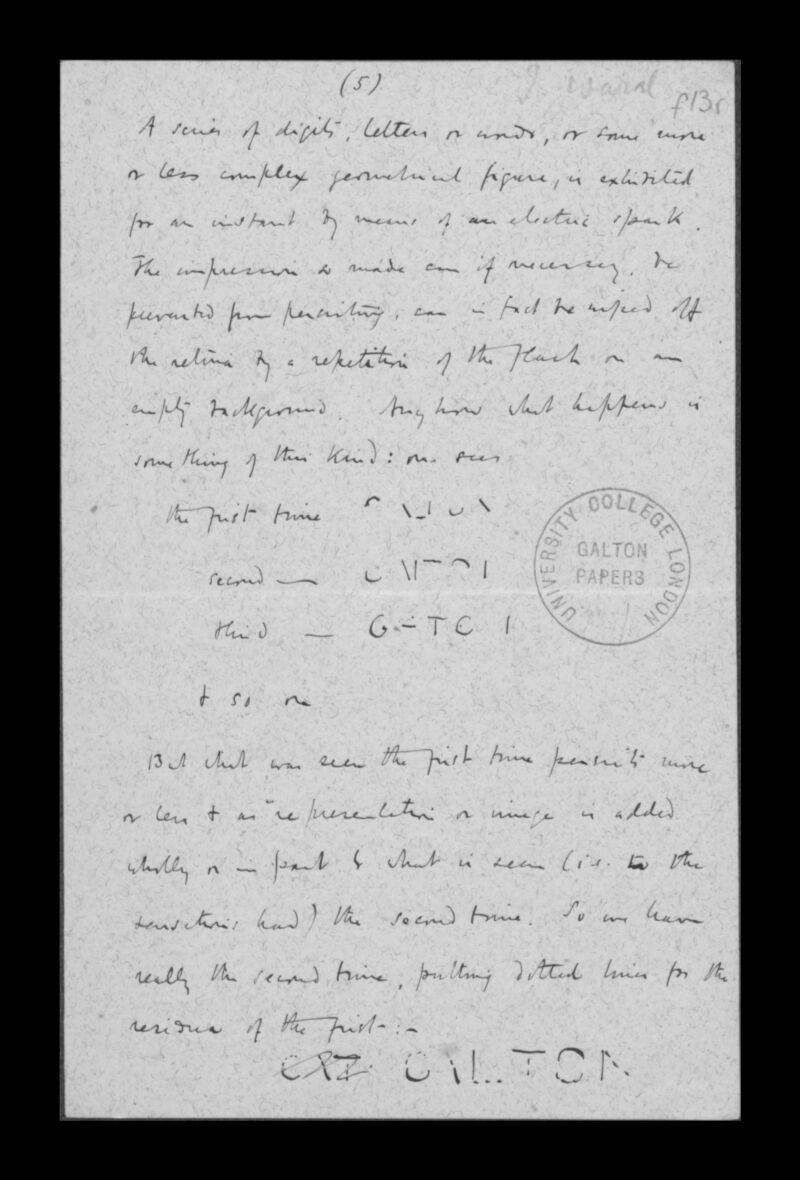 (5)
f13r
A series of digits, letters or words, or some more
or less complex geometrical figure, is exhibited
for an instant by means of an electric spark.
The impression is made can if necessary, be
prevented from persisting; can in fact be wiped off
the retina by a repetition of the flash on an
empty background. Anyhow what happens is
something of this kind: one sees
the first time
second —
third — G-TO I
& so on
UNIVERSITY COLLEGE LONDON
GALTON
PAPERS
But what was seen the first time persists more
or less & as representation or image is added
wholly or in part to what is seen (i.e. to the
sensations had) the second time. So we have
really the second time, putting dotted lines for the
residua of the first:-
GALTON